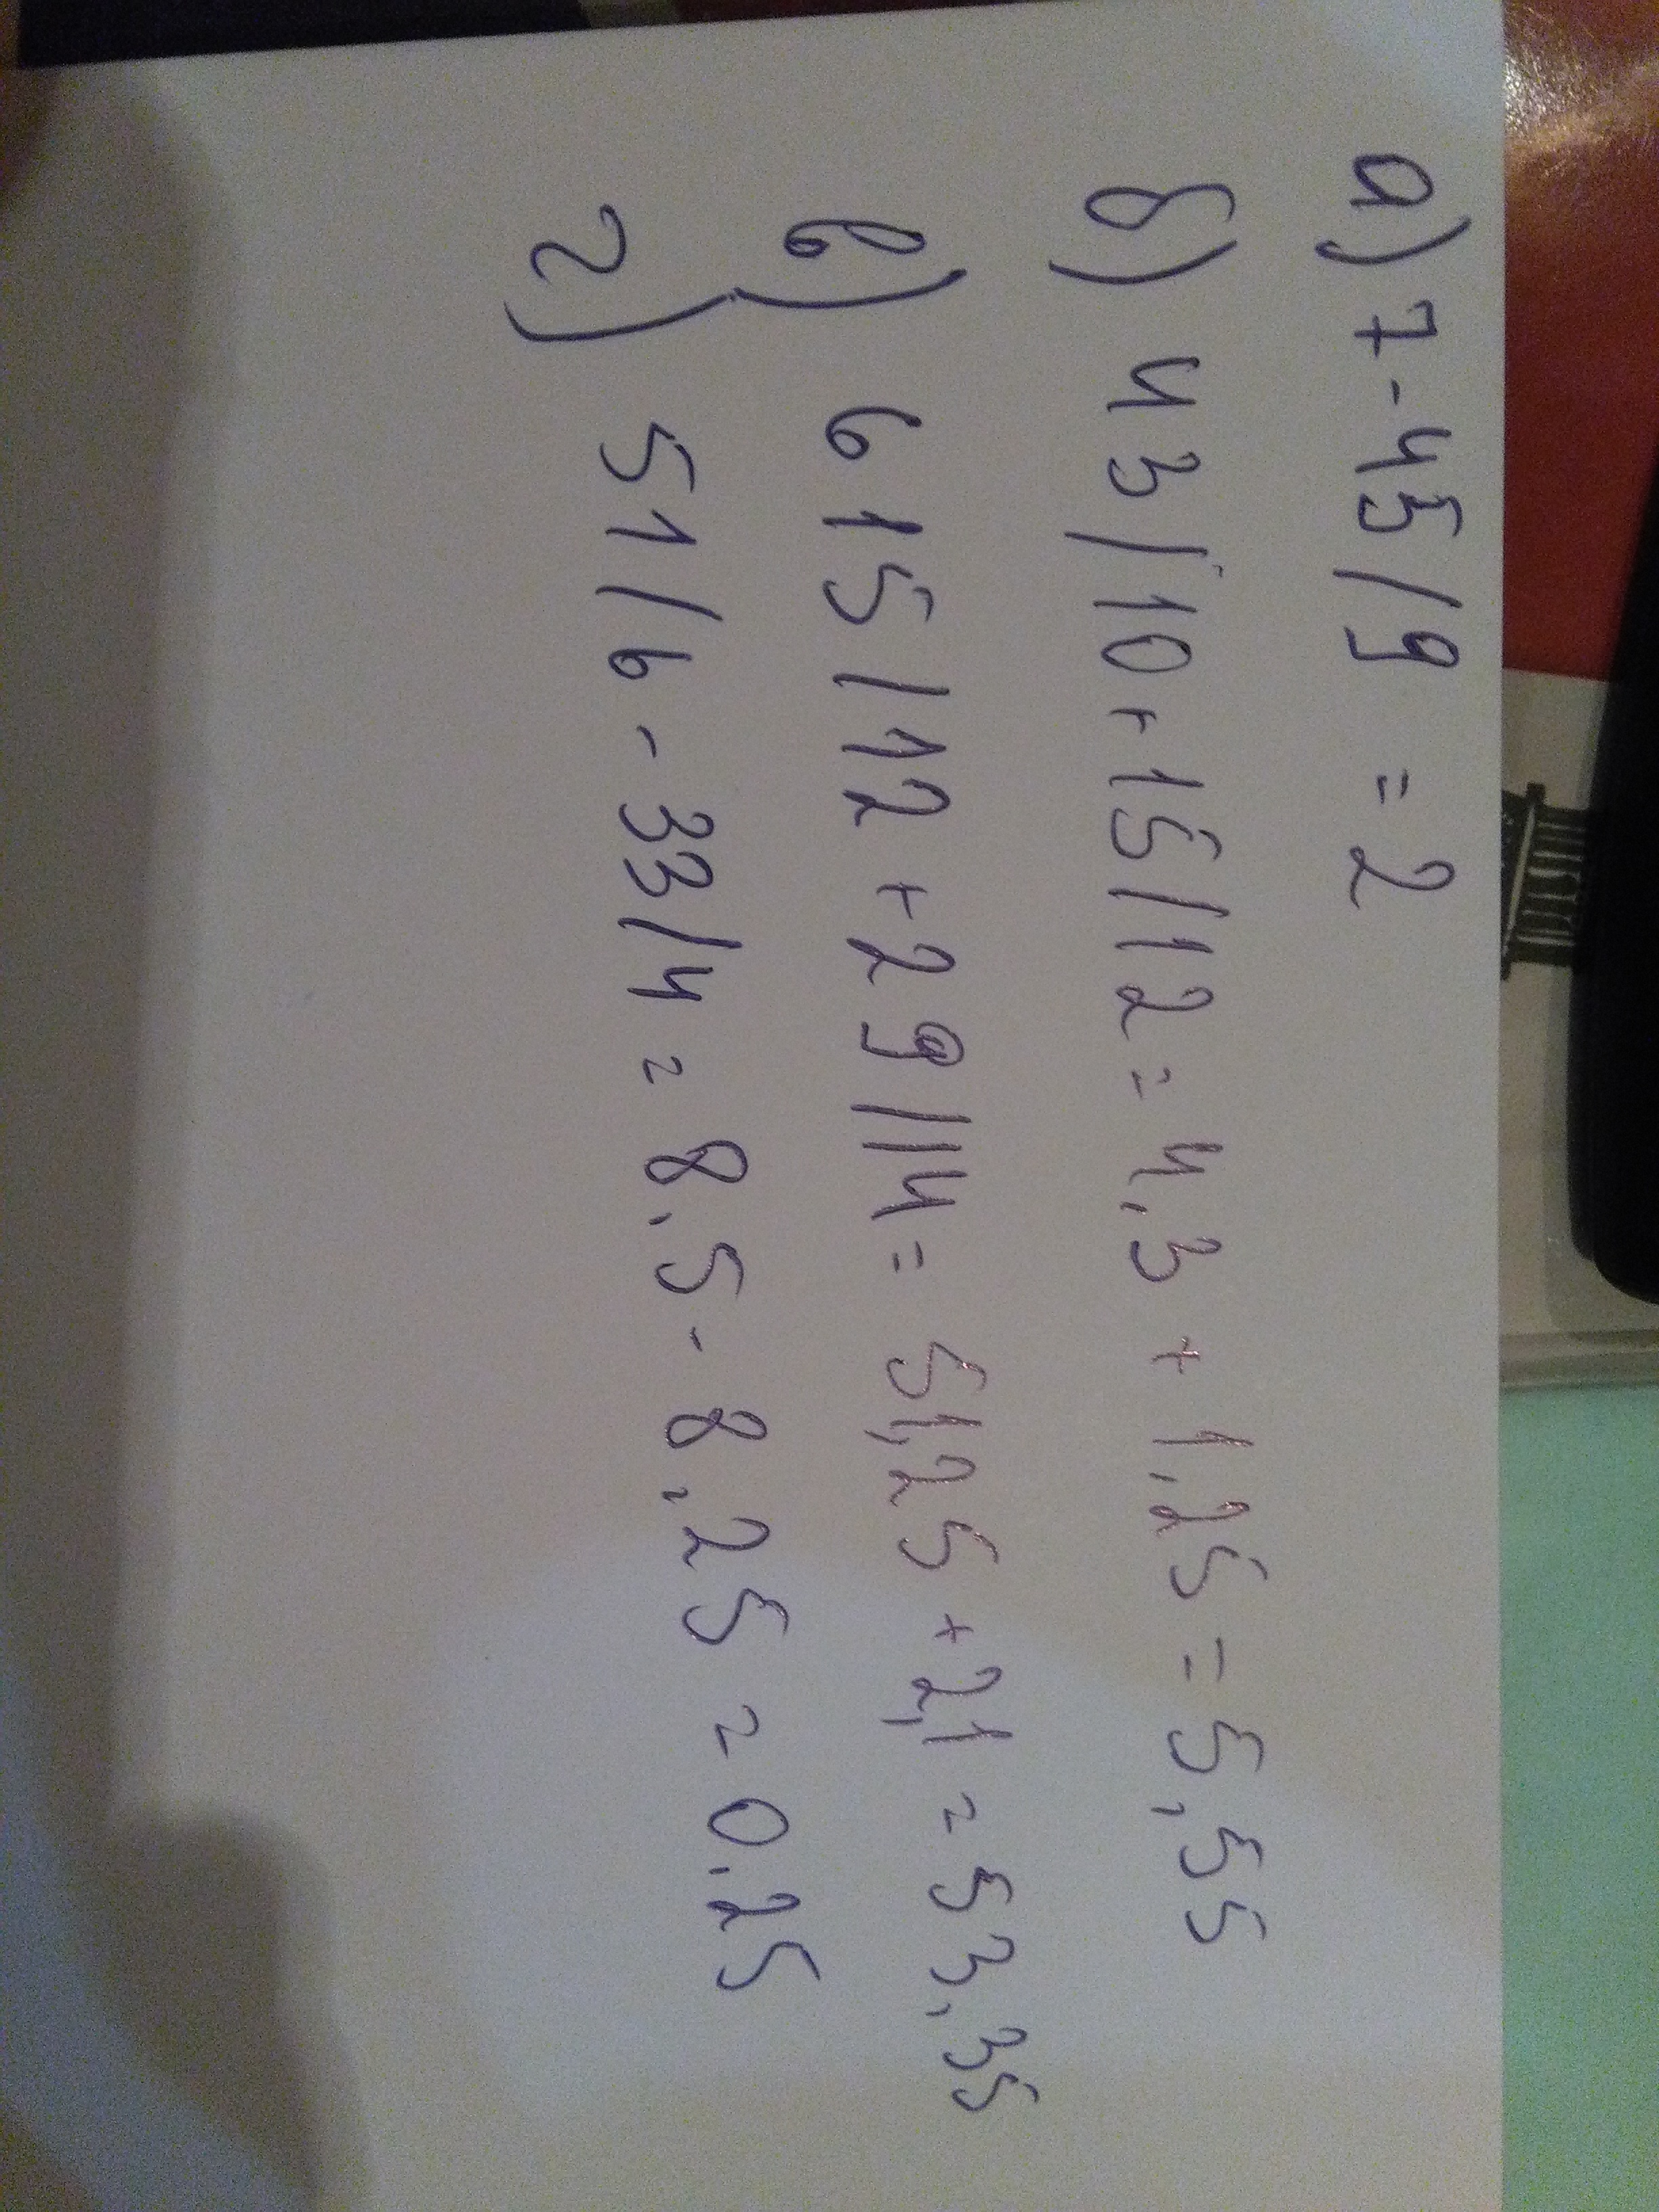 а) 7-45/9 = 2
б) 43/10+15/12= 4,3 + 1,25 = 5,55
в) 615/12 +29/14= 51,25 +2,1 = 53,35
г) 51/6 - 33/4 = 8,5 - 8,25 = 0,25